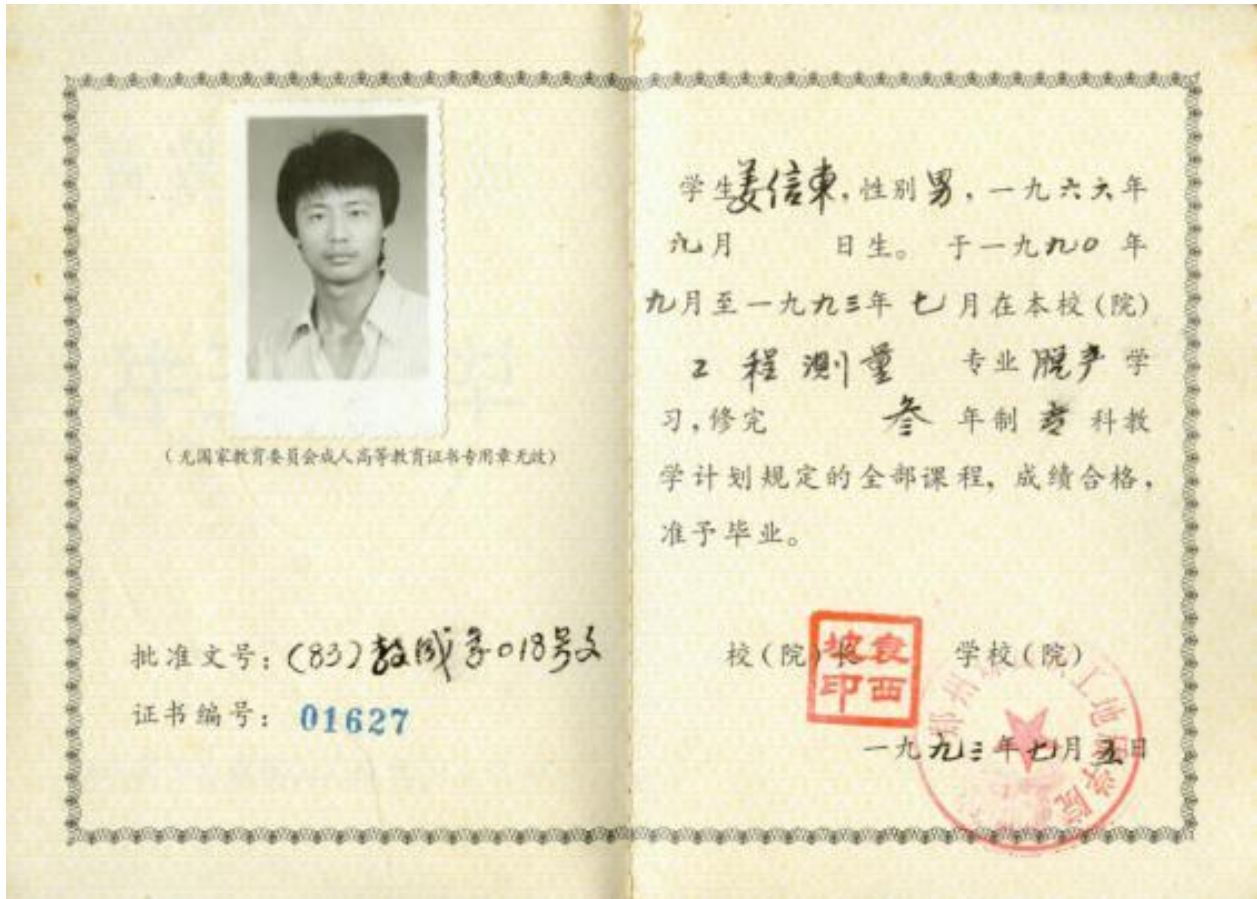 (无国家教育委员会成人高等教育证书专用章无效)
批准文号：(83)教成字018号文
证书编号：01627
学生姜信東，性别男，一九六六年
九月 日生。于一九九0年
九月至一九九三年七月在本校(院)
工程测量 专业脱产学
习，修完 叁年制专科教
学计划规定的全部课程，成绩合格，
准予毕业。
校(院)长 学校(院)
袁西坡印
一九九三年七月五日
郑州 职工地 学院